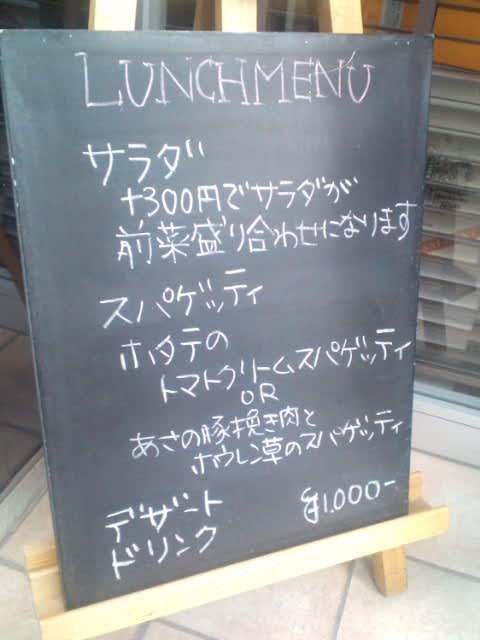 LUNCH MENU
サラダ
+300円でサラダが
前菜盛り合わせになります
スパゲッティ
ホタテの
トマトクリームスパゲッティ
OR
あさの豚挽き肉と
ホウレン草のスパゲッティ
デザート
ドリンク
¥1.000-